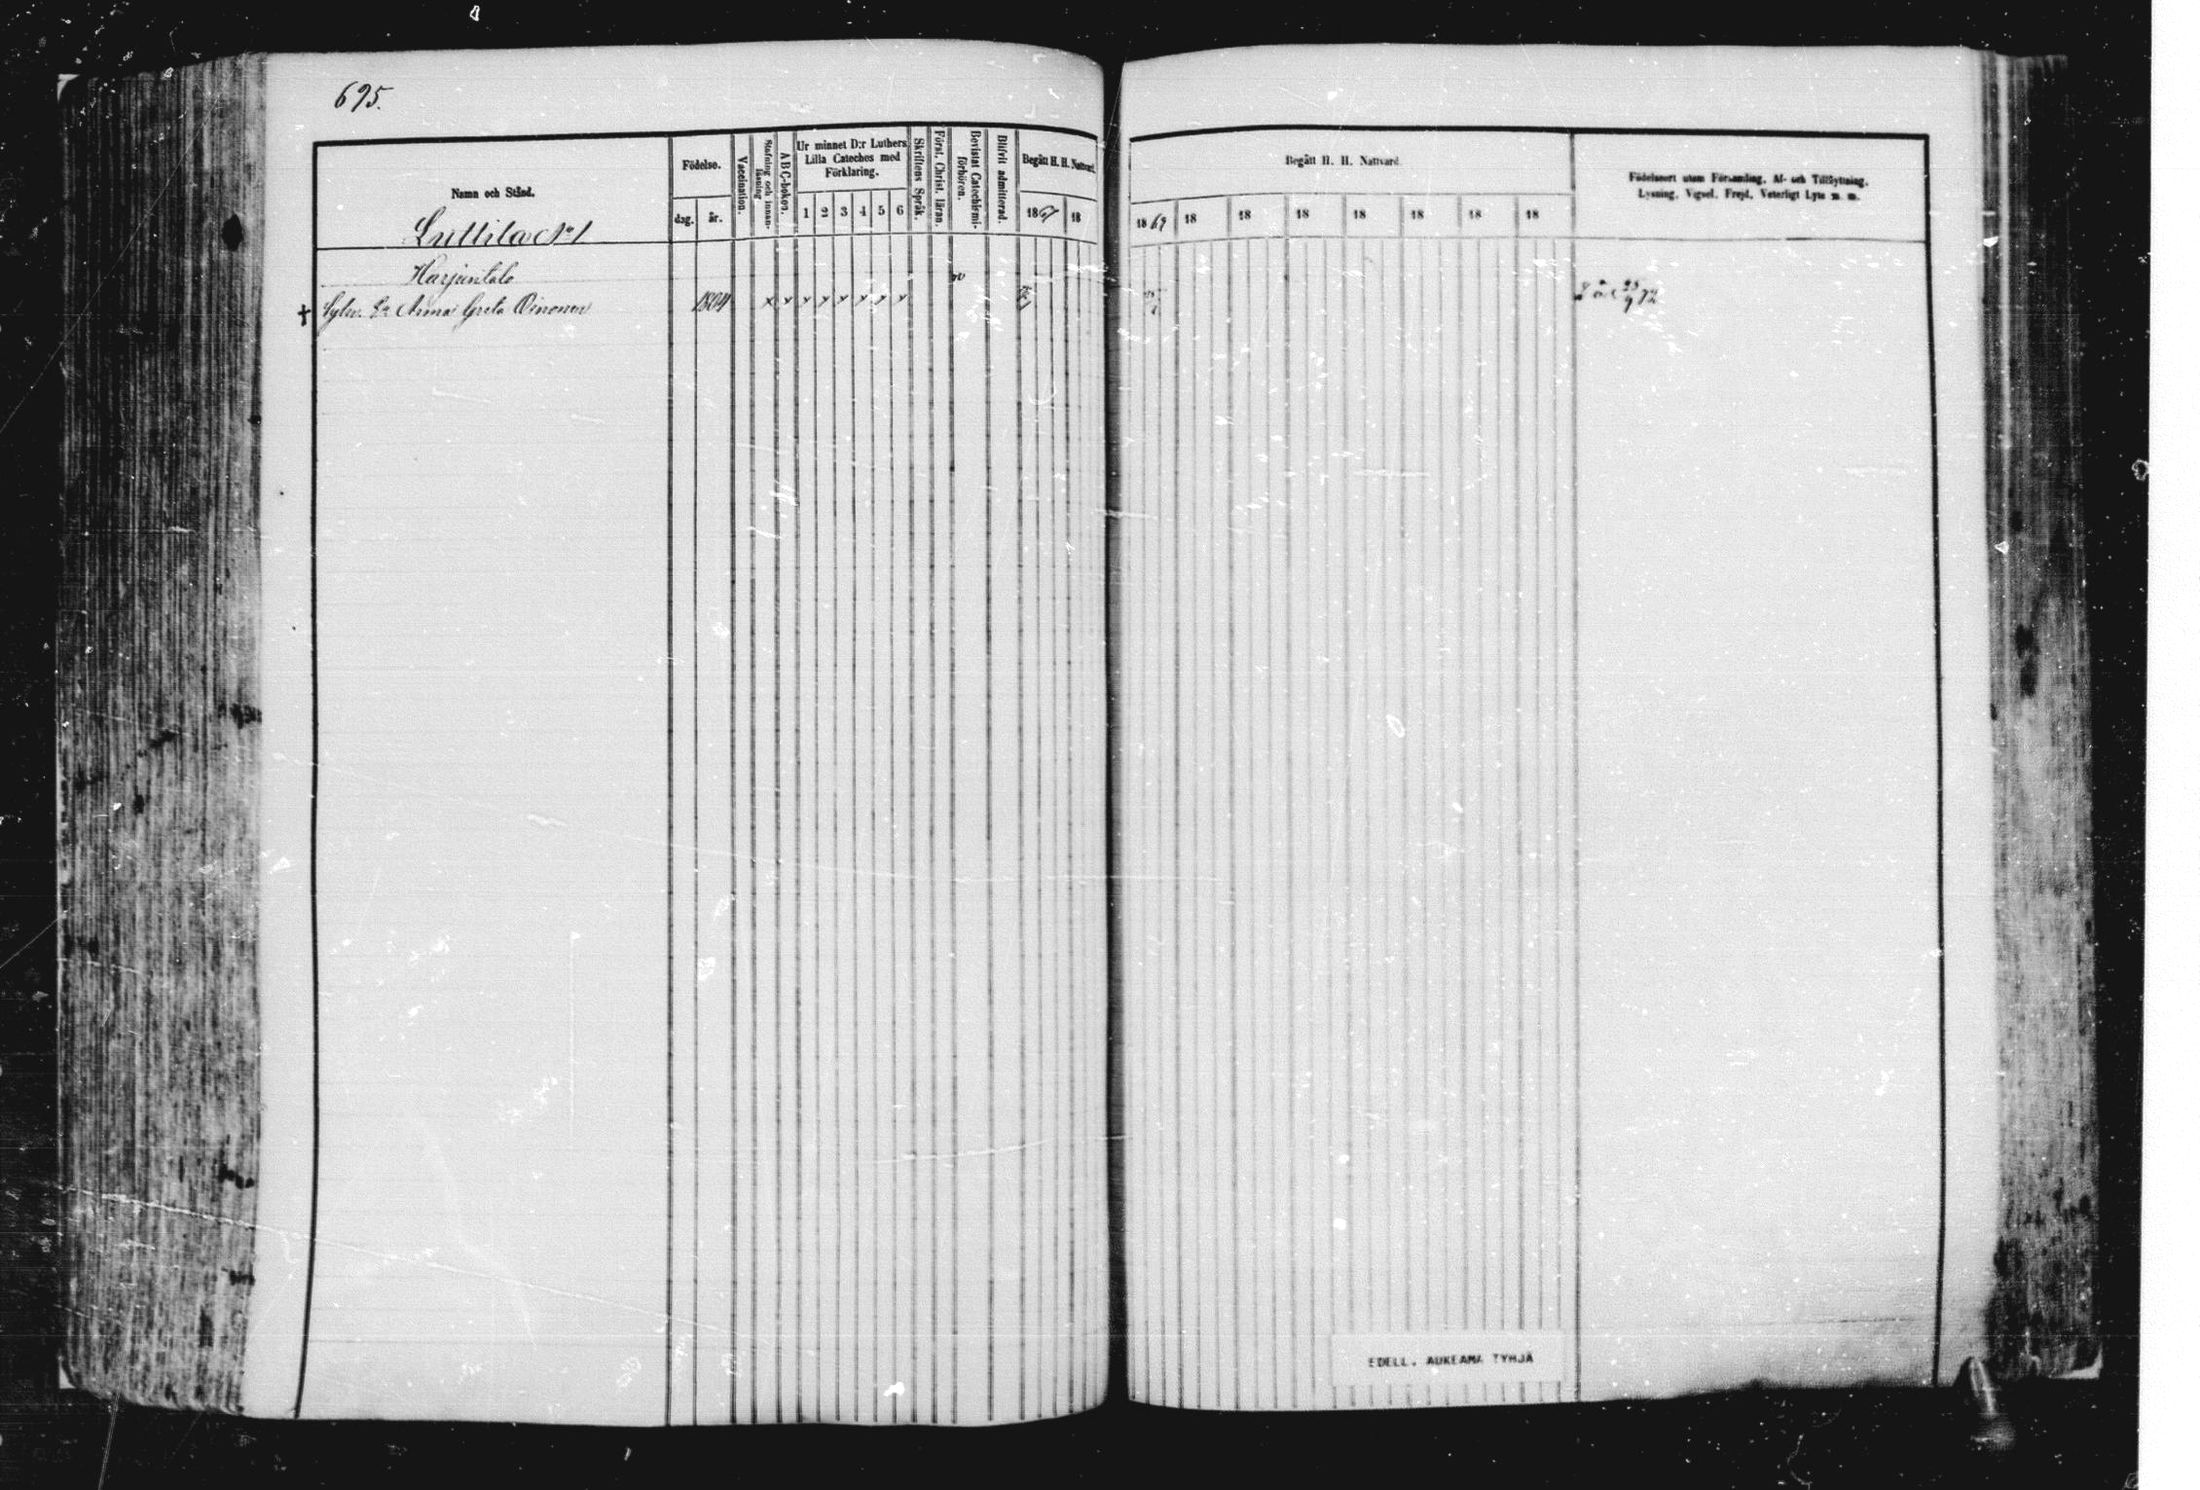 695.
Namn och Stånd.
Födelse.
dag.
år.
Vaccination.
Stafning och innan-läsning
ABC-boken.
Ur minnet D:r Luthers
Lilla Cateches med
Förklaring.
1 2 3 4 5 6
Skriftens Språk.
Först. Christ. läran.
Bevistat Catechismi-
förhören.
Blifvit admitterad.
Begått H. H. Nattvard.
1867 18
Begått H. H. Nattvard.
1869 18 18 18 18 18 18 18
Födelseort utom Församling, Af- och Tillflyttning,
Lysning, Vigsel, Frejd, Veterligt Lyte m. m.
Luttila No 1
Harjuntalo
† Anna Greta Oinonen 1804 x x x x x x x x
EDELL. AUKEAMA TYHJÄ